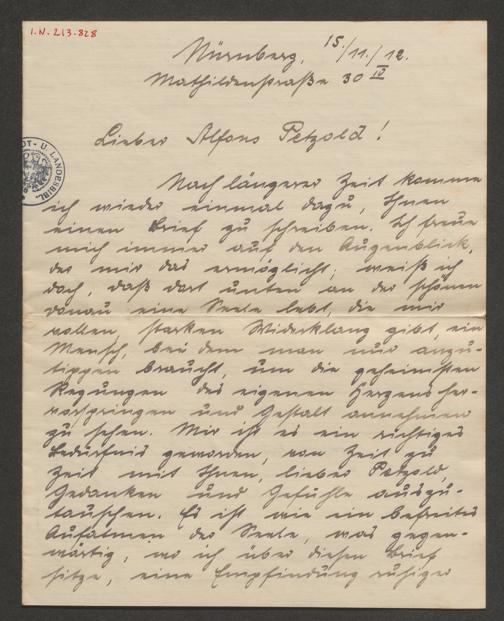 I.N. 213.828
Nürnberg, 15./11./12.
Mathildenstraße 30 IV
Lieber Alfons Petzold!
Nach längerer Zeit komme
ich wieder einmal dazu, Ihnen
einen Brief zu schreiben. Ich freue
mich immer auf den Augenblick,
der mir das ermöglicht; weiß ich
doch, daß dort unten an der schönen
Donau eine Seele lebt, die mir
vollen, starken Widerklang gibt, ein
Mensch, bei dem man nur anzu-
tippen braucht, um die geheimsten
Regungen des eigenen Herzens her-
vorspringen und Gestalt annehmen
zu sehen. Mir ist es ein richtiges
Bedürfnis geworden, von Zeit zu
Zeit mit Ihnen, lieber Petzold,
Gedanken und Gefühle auszu-
tauschen. Es ist wie ein befreites
Aufatmen der Seele, was gegen-
wärtig, wo ich über diesen Brief
sitze, eine Empfindung ruhiger
U. LANDESBIBL